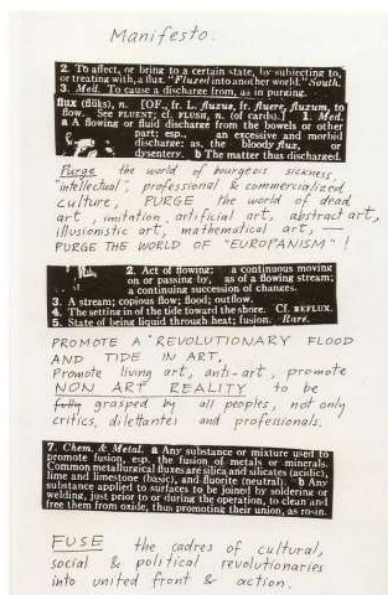 Manifesto.
2. To affect, or bring to a certain state, by subjecting to,
or treating with, a flux. "Fluxed into another world." South.
3. Med. To cause a discharge from, as in purging.
flux (flŭks), n. [OF., fr. L. fluxus, fr. fluere, fluxum, to
flow. See FLUENT; cf. FLUSH, n. (of cards).] 1. Med.
a A flowing or fluid discharge from the bowels or other
part; esp., an excessive and morbid
discharge; as, the bloody flux, or
dysentery. b The matter thus discharged.
Purge the world of bourgeois sickness,
"intellectual", professional & commercialized
culture, PURGE the world of dead
art, imitation, artificial art, abstract art,
illusionistic art, mathematical art, —
PURGE THE WORLD OF "EUROPANISM"!
2. Act of flowing; a continuous moving
on or passing by, as of a flowing stream;
a continuing succession of changes.
3. A stream; copious flow; flood; outflow.
4. The setting in of the tide toward the shore. Cf. REFLUX.
5. State of being liquid through heat; fusion. Rare.
PROMOTE A REVOLUTIONARY FLOOD
AND TIDE IN ART,
Promote living art, anti-art, promote
NON ART REALITY to be
fully grasped by all peoples, not only
critics, dilettantes and professionals.
7. Chem. & Metal. a Any substance or mixture used to
promote fusion, esp. the fusion of metals or minerals.
Common metallurgical fluxes are silica and silicates (acidic),
lime and limestone (basic), and fluorite (neutral). b Any
substance applied to surfaces to be joined by soldering or
welding, just prior to or during the operation, to clean and
free them from oxide, thus promoting their union, as rosin.
FUSE the cadres of cultural,
social & political revolutionaries
into united front & action.